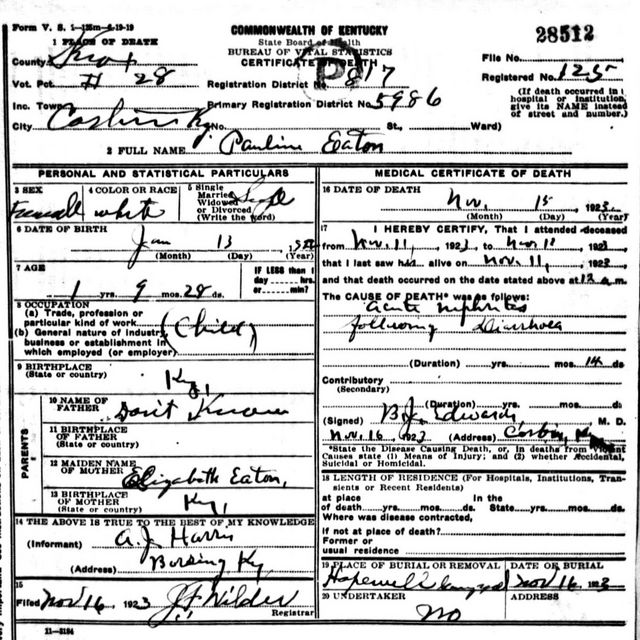 Form V. S. 1—125m—6-19-19
COMMONWEALTH OF KENTUCKY
State Board of Health
BUREAU OF VITAL STATISTICS
CERTIFICATE OF DEATH
28512
1 PLACE OF DEATH
County Knox
File No.
Vot. Pct. # 28
Registration District No. 817
Registered No. 125
Inc. Town
Primary Registration District No. 5986
(If death occurred in a hospital or institution, give its NAME instead of street and number.)
City
No. St., Ward)
2 FULL NAME Pauline Eaton
PERSONAL AND STATISTICAL PARTICULARS
3 SEX
Female
4 COLOR OR RACE
white
5 Single
Married
Widowed
or Divorced
(Write the word)
Single
6 DATE OF BIRTH
Jan 13
(Month) (Day) (Year)
7 AGE
1 yrs. 9 mos. 28 ds.
IF LESS than 1
day hrs.
or min.?
8 OCCUPATION
(a) Trade, profession or
particular kind of work
(b) General nature of industry,
business or establishment in
which employed (or employer)
(Child)
9 BIRTHPLACE
(State or country)
Ky,
PARENTS
10 NAME OF
FATHER
Don't Know
11 BIRTHPLACE
OF FATHER
(State or country)
12 MAIDEN NAME
OF MOTHER
Elizabeth Eaton,
13 BIRTHPLACE
OF MOTHER
(State or country)
Ky,
14 THE ABOVE IS TRUE TO THE BEST OF MY KNOWLEDGE
(Informant) A. J. Harris
(Address) Ky,
15
Filed Nov 16, 1923 J F Wilder
Registrar
11—3184
MEDICAL CERTIFICATE OF DEATH
16 DATE OF DEATH
Nov. 15, 1923
(Month) (Day) (Year)
17 I HEREBY CERTIFY, That I attended deceased
from Nov. 11, 1923, to Nov 1923
that I last saw alive on Nov. 11, 1923
and that death occurred on the date stated above at 12 a.m.
The CAUSE OF DEATH* was as follows:
acute nephrites
following Diarrhoea
(Duration) yrs. mos. 14 ds.
Contributory
(Secondary)
(Duration) yrs. mos. ds.
(Signed) B. J. Edwards M. D.
Nov. 16, 1923 (Address) Corbin, Ky
*State the Disease Causing Death, or, in deaths from Violent
Causes state (1) Means of Injury; and (2) whether Accidental,
Suicidal or Homicidal.
18 LENGTH OF RESIDENCE (For Hospitals, Institutions, Tran-
sients or Recent Residents)
at place In the
of death yrs. mos. ds. State yrs. mos. ds.
Where was disease contracted,
if not at place of death?
Former or
usual residence
19 PLACE OF BURIAL OR REMOVAL
Hopewell
DATE OF BURIAL
Nov 16, 1923
20 UNDERTAKER
No
ADDRESS